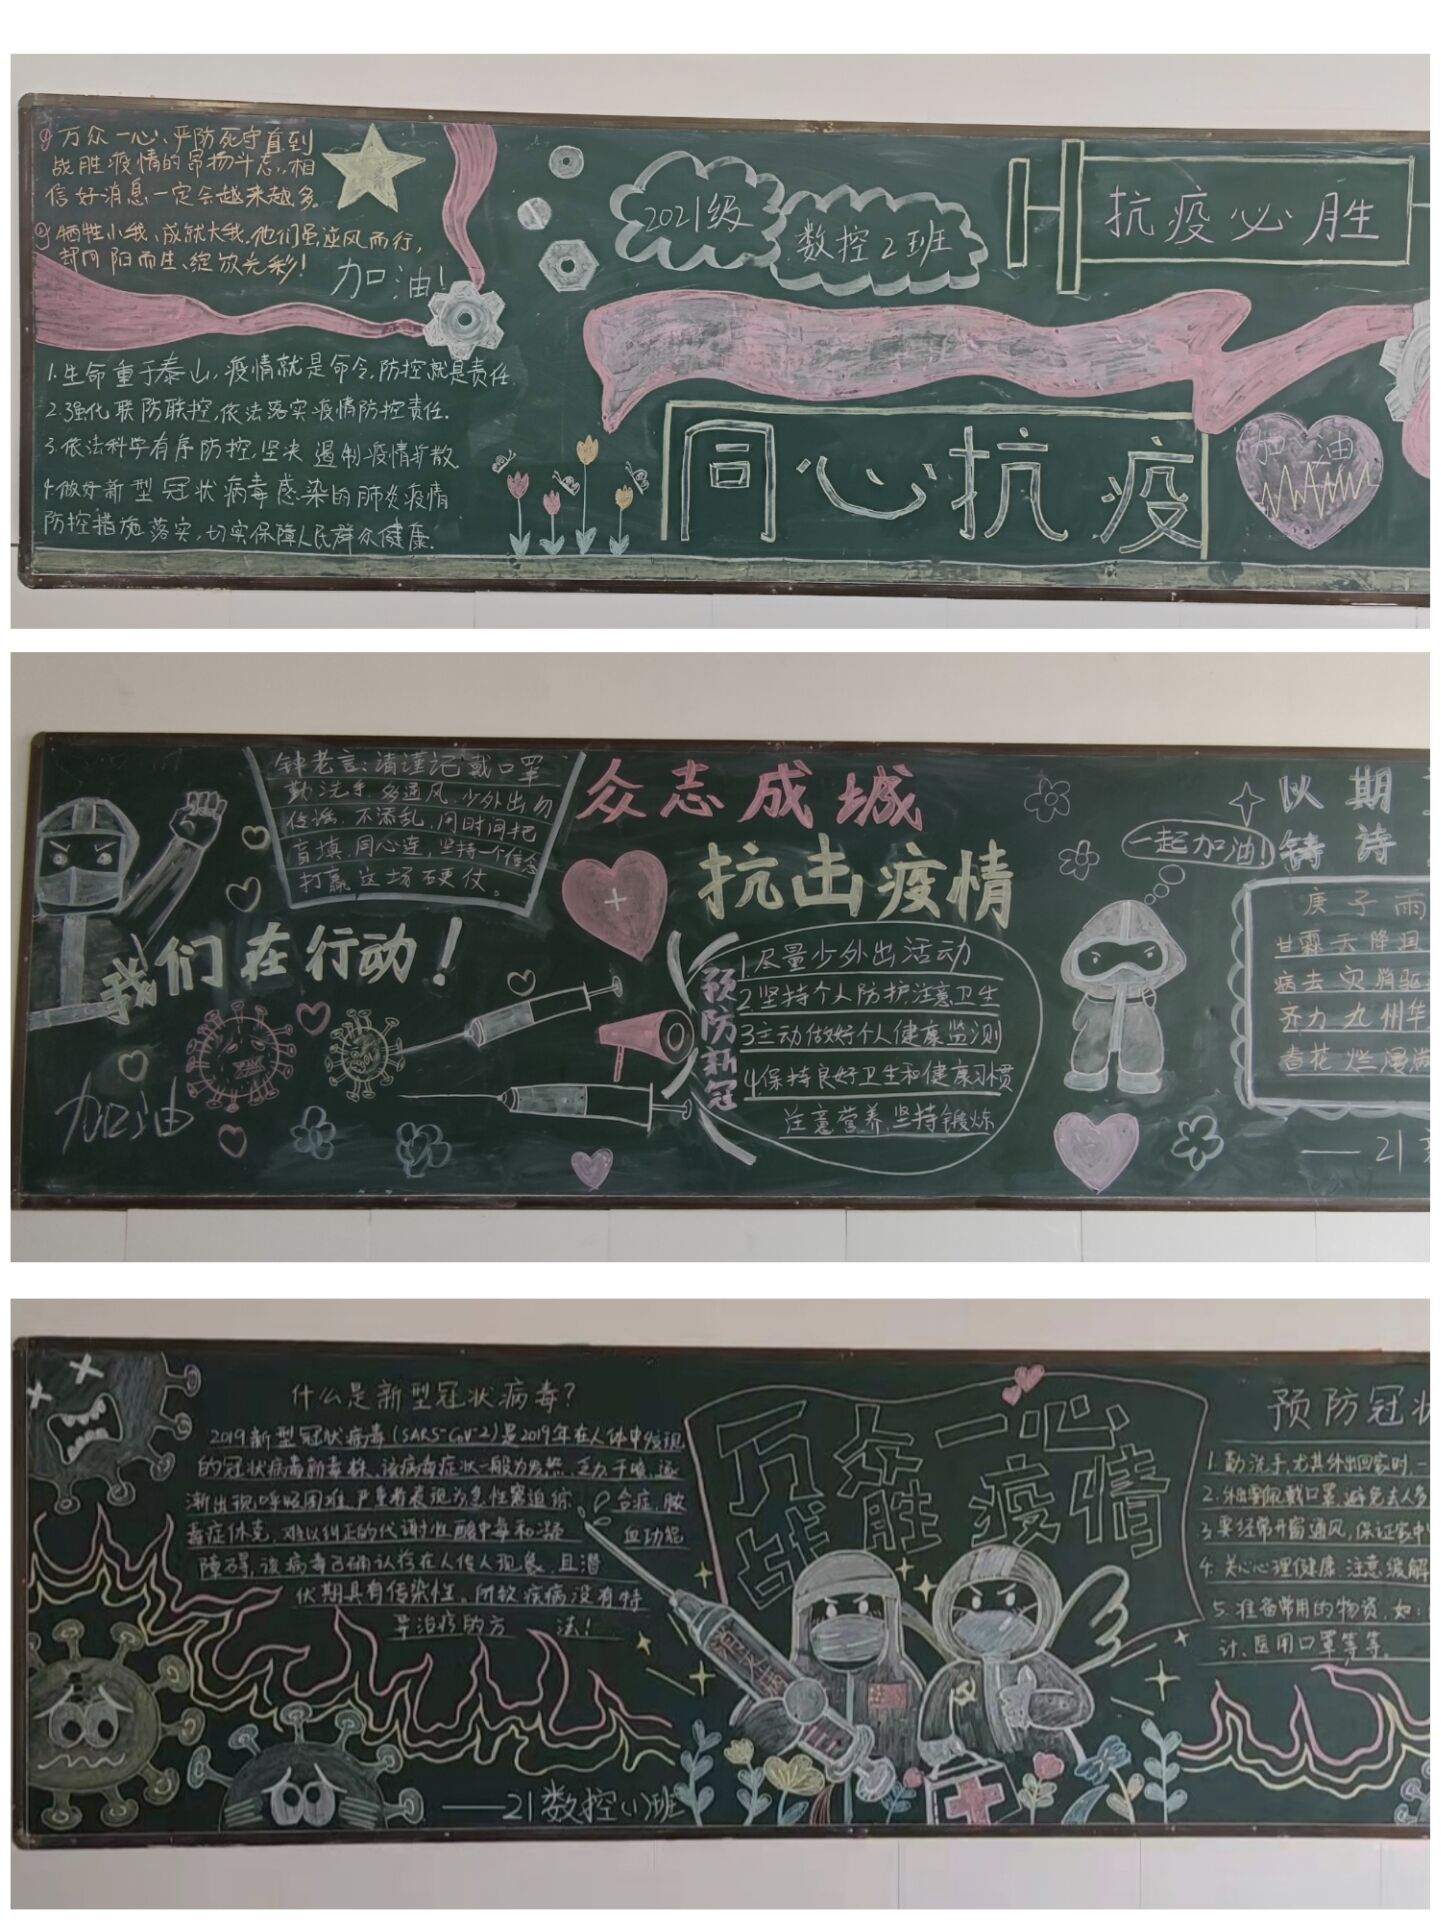 万众一心、严防死守直到
战胜疫情的昂扬斗志,相
信好消息一定会越来越多。
牺牲小我、成就大我,他们虽逆风而行,
却向阳而生、绽放光彩!
加油!
1.生命重于泰山,疫情就是命令,防控就是责任.
2.强化联防联控,依法落实疫情防控责任.
3.依法科学有序防控,坚决遏制疫情扩散
4.做好新型冠状病毒感染的肺炎疫情
防控措施落实,切实保障人民群众健康.
2021级
数控2班
抗疫必胜
同心抗疫
加油
钟老言:请谨记戴口罩
勤洗手,多通风,少外出勿
传谣,不添乱,同时间把
同心连,坚持一个信念
打赢这场硬仗。
我们在行动!
加油
众志成城
抗击疫情
预防新冠
1.尽量少外出活动
2.坚持个人防护,注意卫生
3主动做好个人健康监测
4.保持良好卫生和健康习惯
注意营养,坚持锻炼
一起加油!
以期
铸诗
庚子雨
甘霖天降
病去灾消驱
齐力九州华
春花烂漫满
——21
什么是新型冠状病毒?
2019新型冠状病毒(SARS-CoV-2)是2019年在人体中发现
的冠状病毒新毒株,该病毒症状一般为发热、乏力、干咳、逐
渐出现呼吸困难,严重者表现为急性窘迫综合症、脓
毒症休克、难以纠正的代谢性酸中毒和凝血功能
障碍,该病毒已确认存在人传人现象,且潜
伏期具有传染性。所致疾病没有特
异治疗的方法!
——21数控(1)班
万众一心
战胜疫情
预防冠状
1.勤洗手,尤其外出回家时,一
2.外出要佩戴口罩,避免去人多
3.要经常开窗通风,保证家中
4.关心心理健康,注意缓解
5.准备常用的物资,如:
计、医用口罩等等。